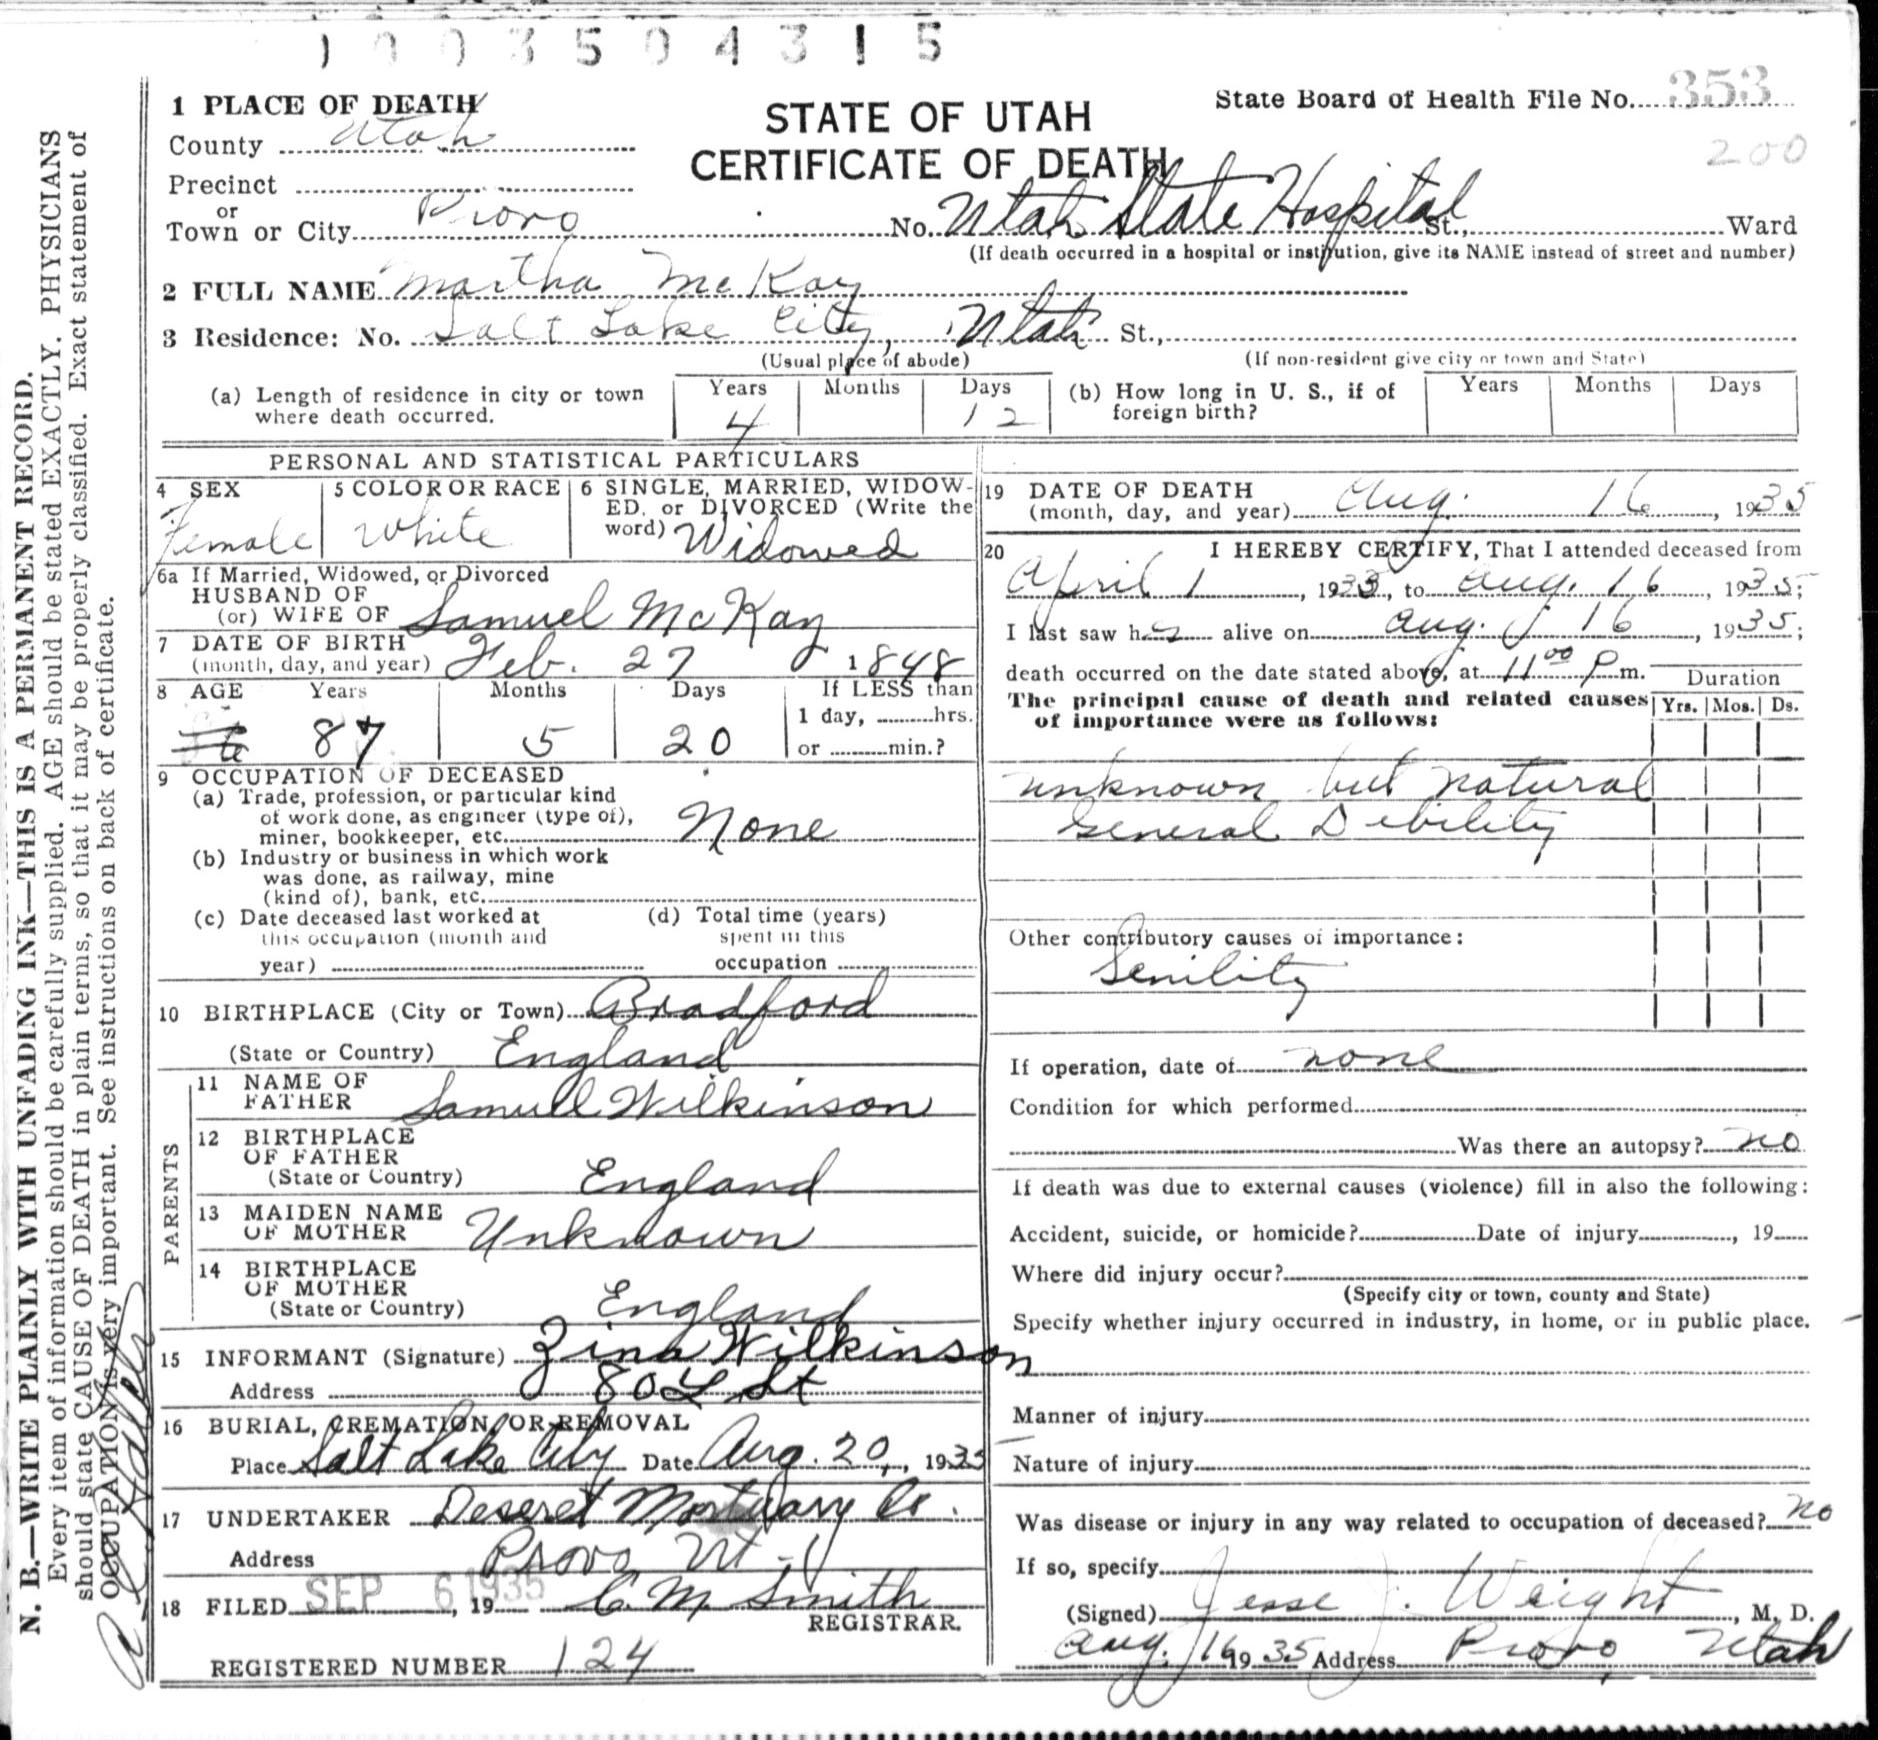 1003504315
1 PLACE OF DEATH
STATE OF UTAH
CERTIFICATE OF DEATH
State Board of Health File No. 353
200
County Utah
Precinct
or
Town or City Provo No. Utah State Hospital St., Ward
(If death occurred in a hospital or institution, give its NAME instead of street and number)
2 FULL NAME Martha McKay
3 Residence: No. Salt Lake City, Utah St.,
(Usual place of abode) (If non-resident give city or town and State)
(a) Length of residence in city or town where death occurred. Years 4 Months Days 12 (b) How long in U. S., if of foreign birth? Years Months Days
PERSONAL AND STATISTICAL PARTICULARS
4 SEX Female
5 COLOR OR RACE White
6 SINGLE, MARRIED, WIDOW-
ED, or DIVORCED (Write the
word) Widowed
6a If Married, Widowed, or Divorced
HUSBAND OF
(or) WIFE OF Samuel McKay
7 DATE OF BIRTH
(month, day, and year) Feb. 27 1848
8 AGE Years Months Days If LESS than
1 day, hrs.
87 5 20 or min.?
9 OCCUPATION OF DECEASED
(a) Trade, profession, or particular kind
of work done, as engineer (type of),
miner, bookkeeper, etc. None
(b) Industry or business in which work
was done, as railway, mine
(kind of), bank, etc.
(c) Date deceased last worked at
this occupation (month and
year)
(d) Total time (years)
spent in this
occupation
10 BIRTHPLACE (City or Town) Bradford
(State or Country) England
PARENTS
11 NAME OF
FATHER Samuel Wilkinson
12 BIRTHPLACE
OF FATHER
(State or Country) England
13 MAIDEN NAME
OF MOTHER Unknown
14 BIRTHPLACE
OF MOTHER
(State or Country) England
15 INFORMANT (Signature) Zina Wilkinson
Address 80 L St
16 BURIAL, CREMATION, OR REMOVAL
Place Salt Lake City Date Aug. 20, 1935
17 UNDERTAKER Deseret Mortuary Co.
Address Provo Ut-
18 FILED SEP 6 1935, 19 C. M. Smith
REGISTRAR.
REGISTERED NUMBER 124
19 DATE OF DEATH
(month, day, and year) Aug. 16, 1935
20 I HEREBY CERTIFY, That I attended deceased from
April 1, 1933, to Aug. 16, 1935;
I last saw her alive on Aug. 16, 1935;
death occurred on the date stated above, at 11 00 P m.
The principal cause of death and related causes
of importance were as follows:
Duration
Yrs. Mos. Ds.
unknown but natural
General Debility
Other contributory causes of importance:
Senility
If operation, date of none
Condition for which performed
Was there an autopsy? no
If death was due to external causes (violence) fill in also the following:
Accident, suicide, or homicide? Date of injury, 19
Where did injury occur?
(Specify city or town, county and State)
Specify whether injury occurred in industry, in home, or in public place.
Manner of injury
Nature of injury
Was disease or injury in any way related to occupation of deceased? no
If so, specify
(Signed) Jesse J. Weight, M. D.
Aug. 16 1935 Address Provo, Utah
N. B.—WRITE PLAINLY WITH UNFADING INK—THIS IS A PERMANENT RECORD.
Every item of information should be carefully supplied. AGE should be stated EXACTLY. PHYSICIANS
should state CAUSE OF DEATH in plain terms, so that it may be properly classified. Exact statement of
OCCUPATION is very important. See instructions on back of certificate.